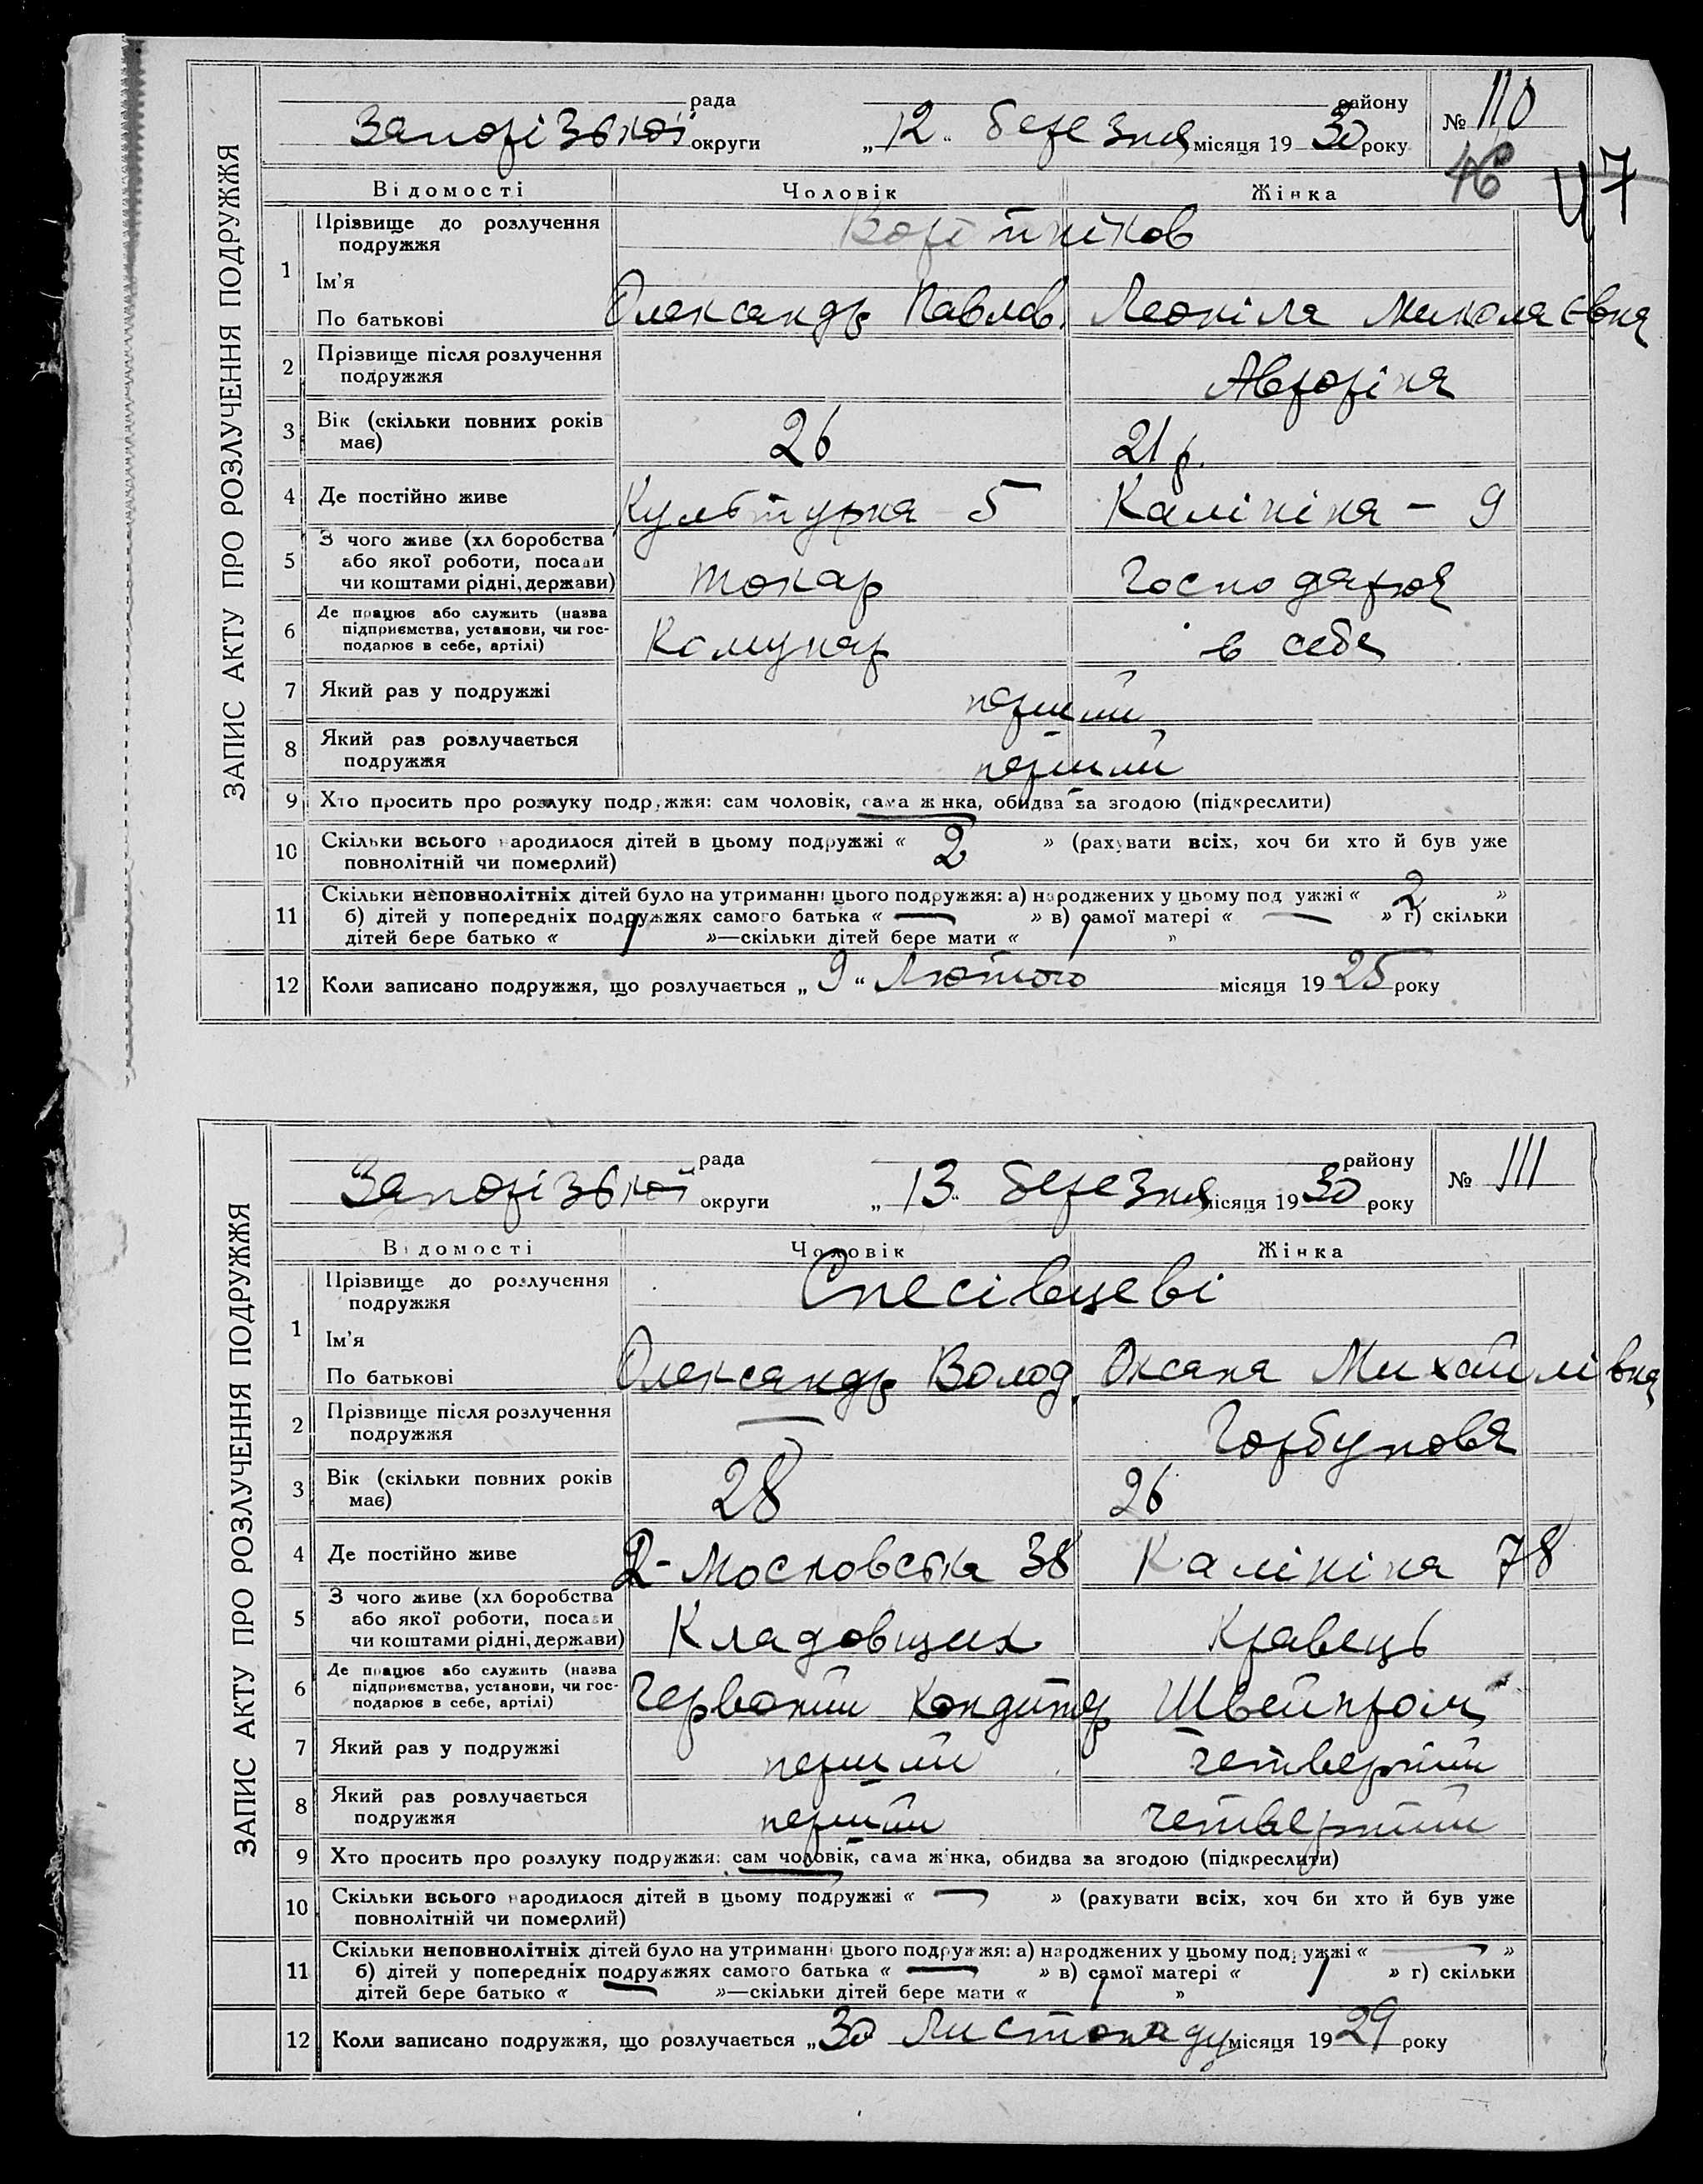 ЗАПИС АКТУ ПРО РОЗЛУЧЕННЯ ПОДРУЖЖЯ
рада району № 110
Запорізької округи „12“ березня місяця 1930 року
46 47
Відомості Чоловік Жінка
1 Прізвище до розлучення подружжя
Ім’я
По батькові Олександр Павлов. Леоніла Миколаєвна
2 Прізвище після розлучення
подружжя
3 Вік (скільки повних років
має) 26 21 р.
4 Де постійно живе Культурна 5 Калініна - 9
5 З чого живе (хл боробства
або якої роботи, посади
чи коштами рідні, держави) токар Господарює
6 Де працює або служить (назва
підприємства, установи, чи гос-
подарює в себе, артілі) Комунар в себе
7 Який раз у подружжі перший
8 Який раз розлучається
подружжя перший
9 Хто просить про розлуку подружжя: сам чоловік, сама жінка, обидва за згодою (підкреслити)
10 Скільки всього народилося дітей в цьому подружжі « 2 » (рахувати всіх, хоч би хто й був уже
повнолітній чи померлий)
11 Скільки неповнолітніх дітей було на утриманні цього подружжя: а) народжених у цьому подружжі « 2 »
б) дітей у попередніх подружжях самого батька « — » в) самої матері « — » г) скільки
дітей бере батько « 1 »—скільки дітей бере мати « 1 »
12 Коли записано подружжя, що розлучається „9“ Лютого місяця 1925 року
ЗАПИС АКТУ ПРО РОЗЛУЧЕННЯ ПОДРУЖЖЯ
рада району № 111
Запорізької округи „13“ березня місяця 1930 року
Відомості Чоловік Жінка
1 Прізвище до розлучення подружжя Спесівцеві
Ім’я
По батькові Олександр Волод. Оксана Михайлівна
2 Прізвище після розлучення
подружжя — Горбунова
3 Вік (скільки повних років
має) 28 26
4 Де постійно живе 2-Московська 38 Калініна 78
5 З чого живе (хл боробства
або якої роботи, посади
чи коштами рідні, держави) Кладовщик Кравець
6 Де працює або служить (назва
підприємства, установи, чи гос-
подарює в себе, артілі) Червоний кондитер Швейпром
7 Який раз у подружжі перший четвертий
8 Який раз розлучається
подружжя перший четвертий
9 Хто просить про розлуку подружжя: сам чоловік, сама жінка, обидва за згодою (підкреслити)
10 Скільки всього народилося дітей в цьому подружжі « — » (рахувати всіх, хоч би хто й був уже
повнолітній чи померлий)
11 Скільки неповнолітніх дітей було на утриманні цього подружжя: а) народжених у цьому подружжі « — »
б) дітей у попередніх подружжях самого батька « — » в) самої матері « 1 » г) скільки
дітей бере батько « — »—скільки дітей бере мати « 1 »
12 Коли записано подружжя, що розлучається „30 Листопаду місяця 1929 року